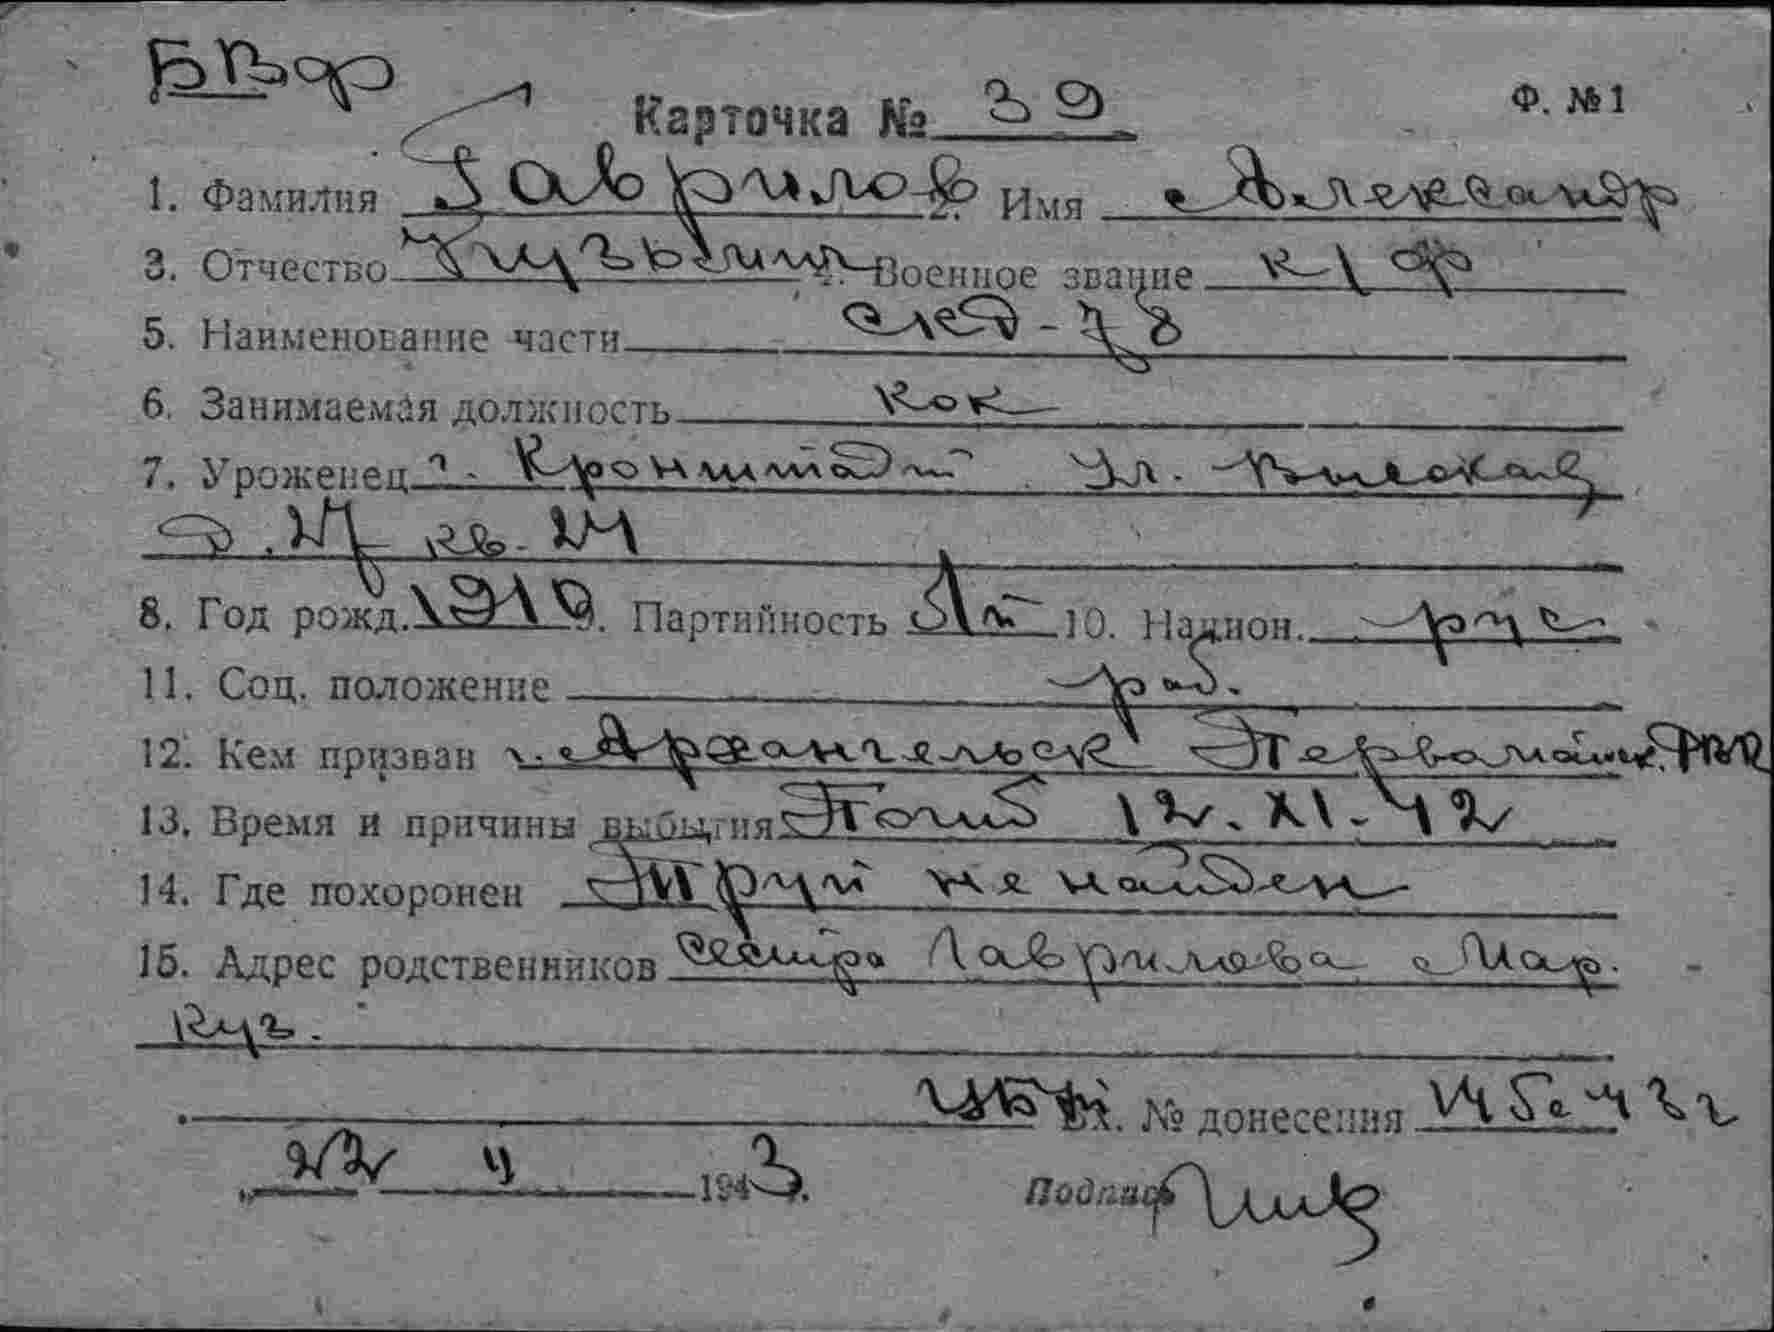 БВф
Карточка № 39 Ф. № 1
1. Фамилия Гаврилов 2. Имя Александр
3. Отчество Кузьмич 4. Военное звание к/ф
5. Наименование части СКД-78
6. Занимаемая должность Кок
7. Уроженец г. Кронштадт Ул.
д. 27 кв. 24
8. Год рожд. 1919 9. Партийность 10. Национ. рус
11. Соц. положение раб.
12. Кем призван г. Архангельск Первомайск. РВК
13. Время и причины выбытия Погиб 12.XI.42
14. Где похоронен Труп не найден
15. Адрес родственников сестра Гаврилова Мар.
Куз.
Вх. № донесения 145с 43г
„ 22 II 1943.
Подпись